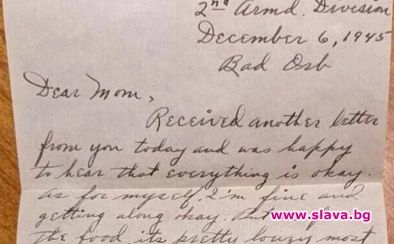 2nd Armd. Division
December 6, 1945
Bad Orb
Dear Mom,
Received another letter
from you today and was happy
to hear that everything is okay.
As for myself, I'm fine and
getting along okay. But
www.slava.bg
the food its pretty lousy most